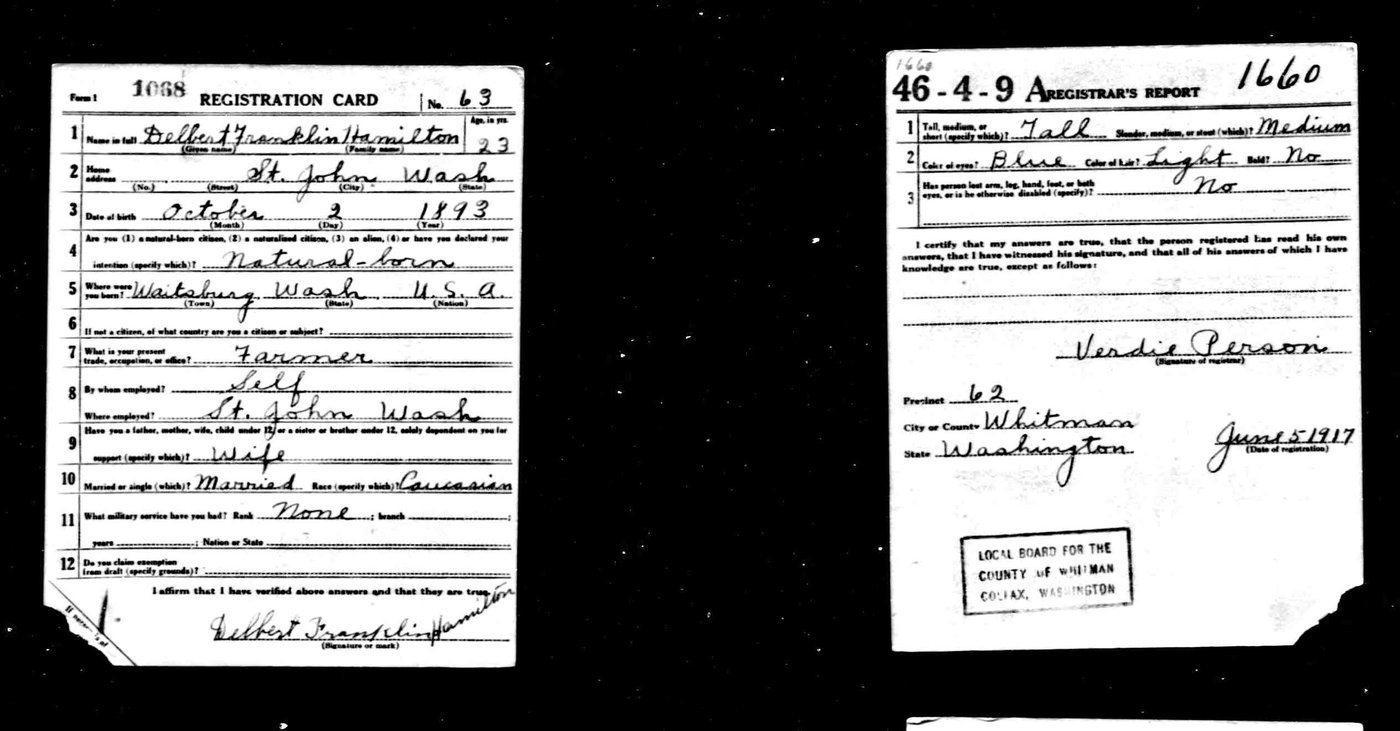 1068
Form 1 REGISTRATION CARD No. 63
1 Name in full Delbert Franklin Hamilton Age, in yrs. 23
(Given name) (Family name)
2 Home address St. John Wash
(No.) (Street) (City) (State)
3 Date of birth October 2 1893
(Month) (Day) (Year)
4 Are you (1) a natural-born citizen, (2) a naturalized citizen, (3) an alien, (4) or have you declared your
intention (specify which)? Natural-born
5 Where were you born? Waitsburg Wash U.S.A.
(Town) (State) (Nation)
6 If not a citizen, of what country are you a citizen or subject?
7 What is your present trade, occupation, or office? Farmer
8 By whom employed? Self
Where employed? St. John Wash
9 Have you a father, mother, wife, child under 12, or a sister or brother under 12, solely dependent on you for
support (specify which)? Wife
10 Married or single (which)? Married Race (specify which)? Caucasian
11 What military service have you had? Rank None ; branch ;
years ; Nation or State
12 Do you claim exemption from draft (specify grounds)?
I affirm that I have verified above answers and that they are true.
Delbert Franklin Hamilton
(Signature or mark)
If person is of
1660
46-4-9 A REGISTRAR'S REPORT 1660
1 Tall, medium, or short (specify which)? Tall Slender, medium, or stout (which)? Medium
2 Color of eyes? Blue Color of hair? Light Bald? No
3 Has person lost arm, leg, hand, foot, or both eyes, or is he otherwise disabled (specify)? No
I certify that my answers are true, that the person registered has read his own
answers, that I have witnessed his signature, and that all of his answers of which I have
knowledge are true, except as follows:
Verdie Person
(Signature of registrar)
Precinct 62
City or County Whitman
State Washington June 5 1917
(Date of registration)
LOCAL BOARD FOR THE
COUNTY OF WHITMAN
COLFAX, WASHINGTON